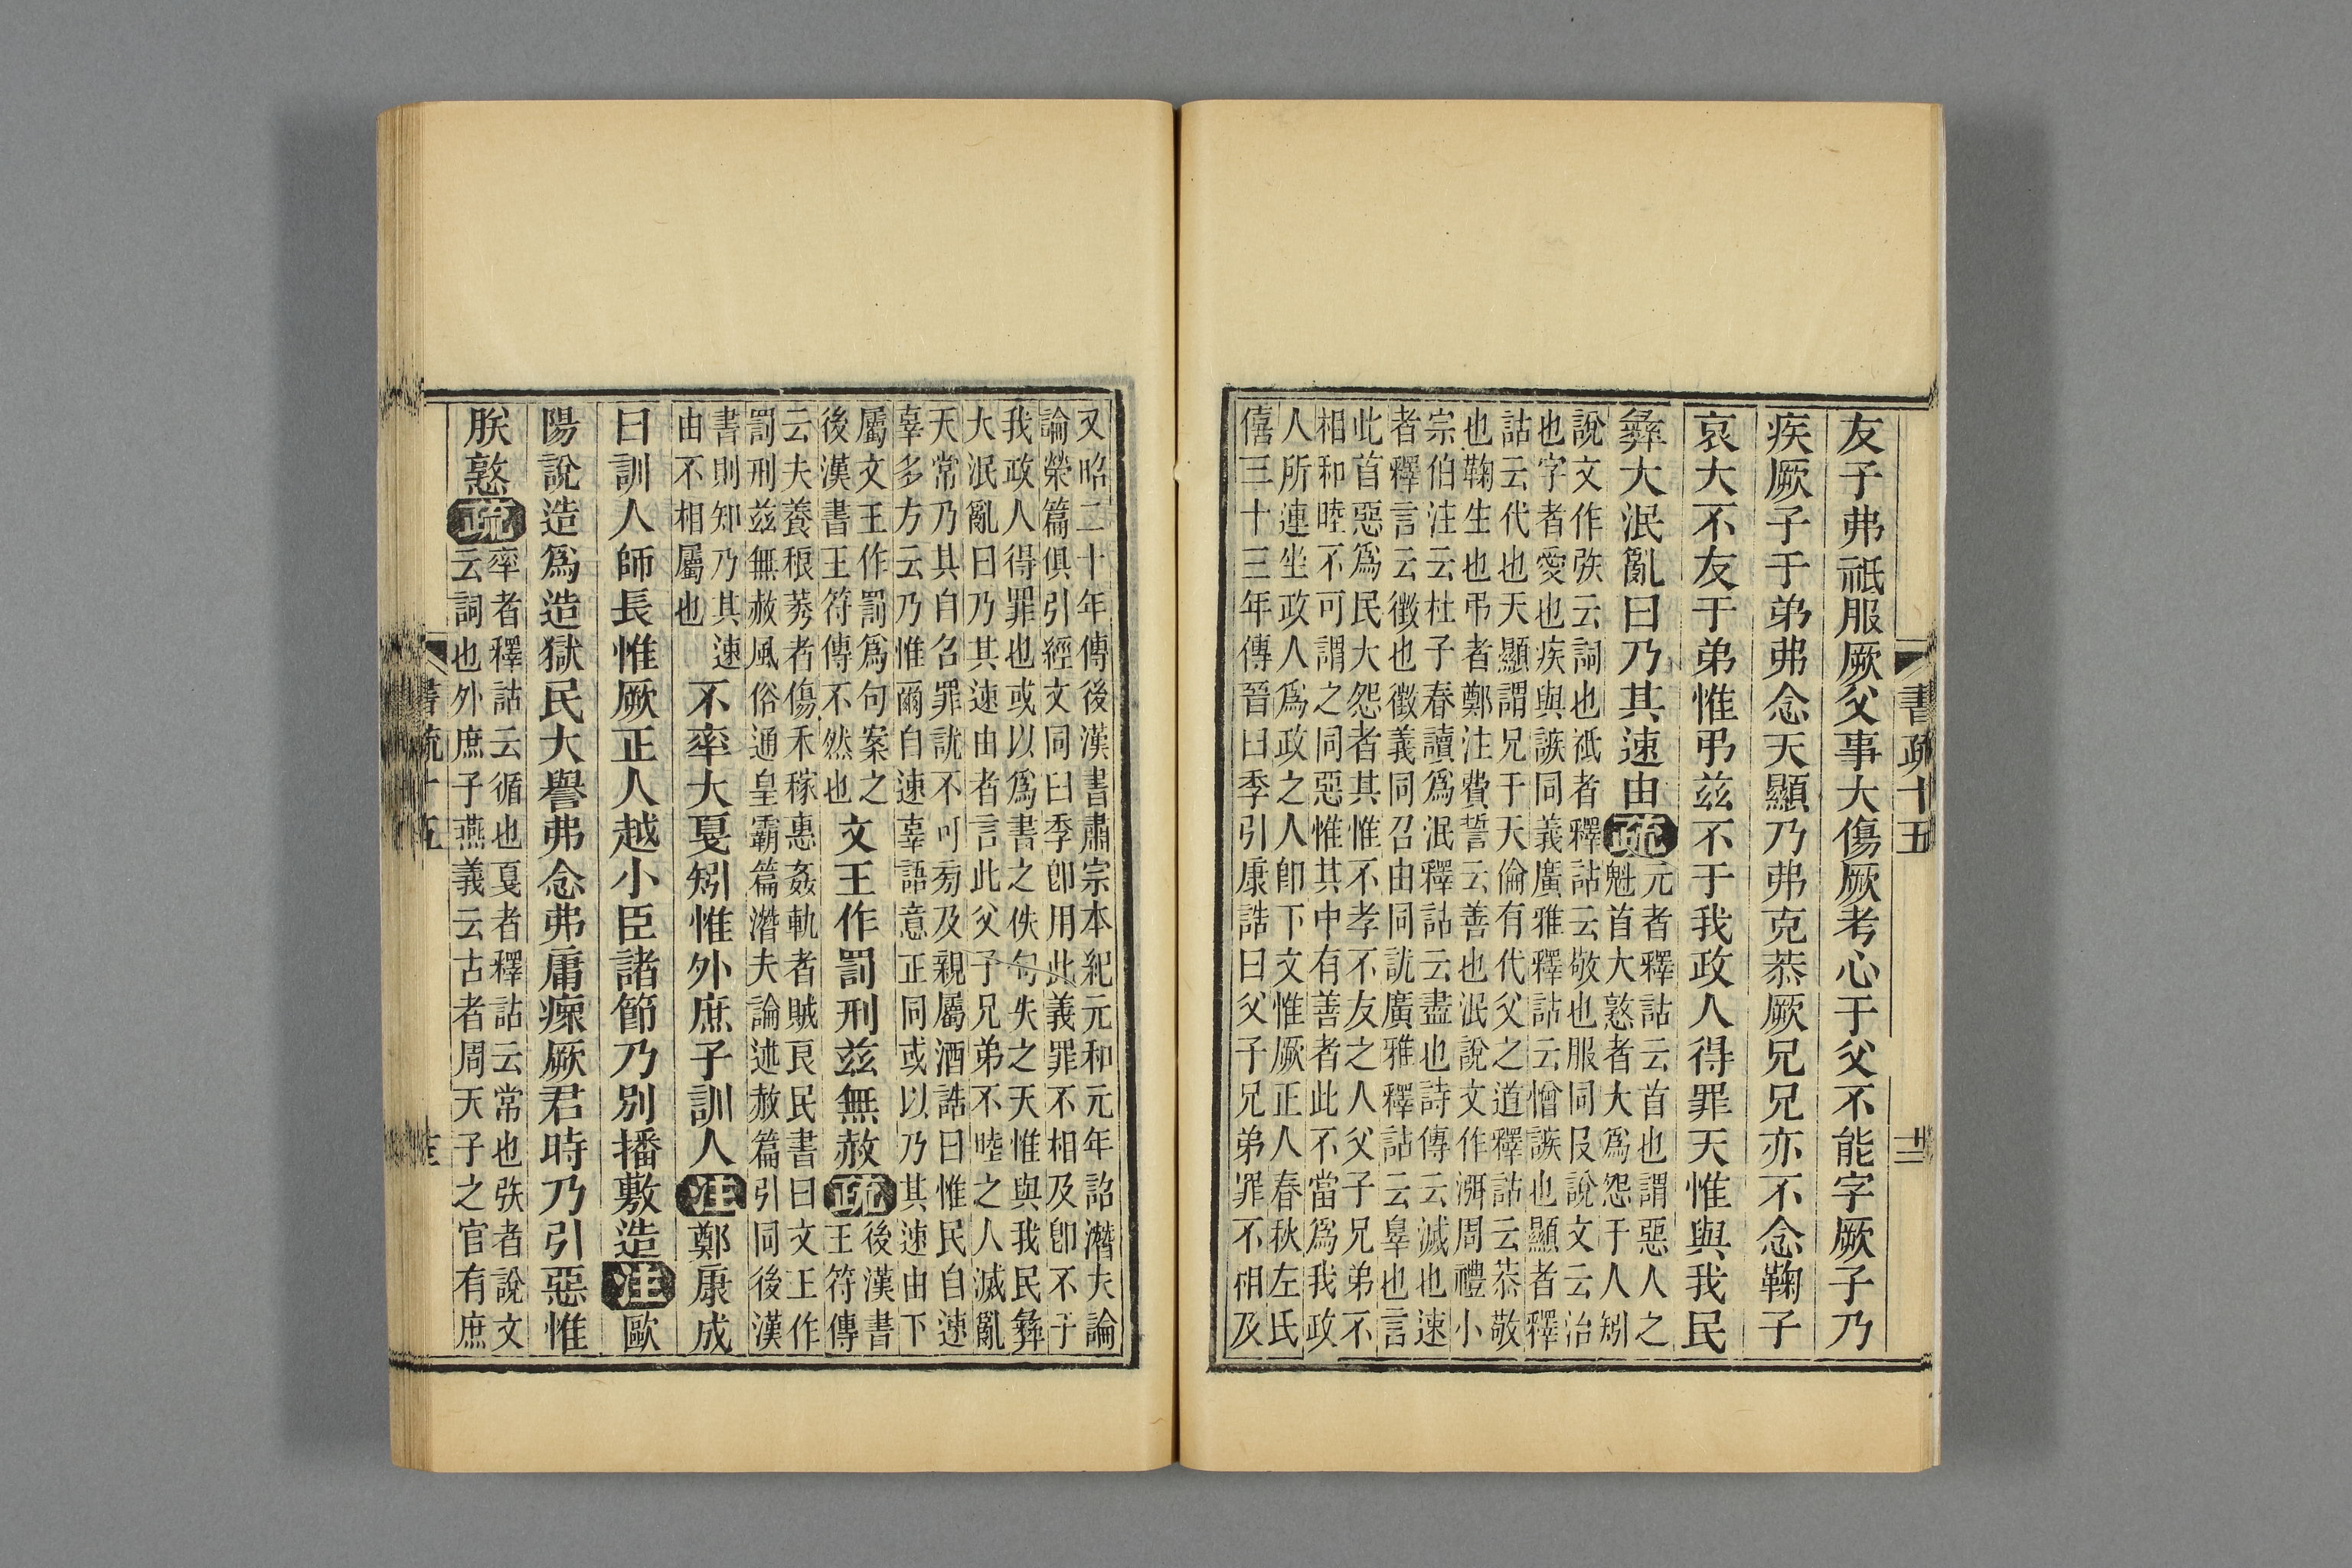 書疏十五
友子弗祗服厥父事大傷厥考心于父不能字厥子乃
疾厥子于弟弗念天顯乃弗克恭厥兄兄亦不念鞠子
哀大不友于弟惟弔兹不于我政人得罪天惟與我民
彝大泯亂曰乃其速由疏
元者釋詁云首也謂惡人之
魁首大憝者大爲怨于人矧
說文作㢮云詞也祗者釋詁云敬也服同𠬝說文云治
也字者愛也疾與誺同義廣雅釋詁云憎誺也顯者釋
詁云代也天顯謂兄于天倫有代父之道釋詁云恭敬
也鞠生也弔者鄭注費誓云善也泯說文作湣周禮小
宗伯注云杜子春讀爲泯釋詁云盡也詩傳云滅也速
者釋言云徵也徵義同召由同訧廣雅釋詁云辠也言
此首惡爲民大怨者其惟不孝不友之人父子兄弟不
相和睦不可謂之同惡惟其中有善者此不當爲我政
人所連坐政人爲政之人卽下文惟厥正人春秋左氏
僖三十三年傳晉臼季引康誥曰父子兄弟罪不相及
又昭二十年傳後漢書肅宗本紀元和元年詔潛夫論
論榮篇俱引經文同臼季卽用此義罪不相及卽不于
我政人得罪也或以爲書之佚句失之天惟與我民彝
大泯亂曰乃其速由者言此父子兄弟不睦之人滅亂
天常乃其自召罪訧不可旁及親屬酒誥曰惟民自速
辜多方云乃惟爾自速辜語意正同或以乃其速由下
屬文王作罰爲句案之
後漢書王符傳不然也
文王作罰刑兹無赦疏
後漢書
王符傳
云夫養稂莠者傷禾稼惠姦軌者賊良民書曰文王作
罰刑兹無赦風俗通皇霸篇潛夫論述赦篇引同後漢
書則知乃其速
由不相屬也
不率大戛矧惟外庶子訓人注鄭康成
曰訓人師長惟厥正人越小臣諸節乃別播敷造注歐
陽說造爲造獄民大譽弗念弗庸瘝厥君時乃引惡惟
朕憝疏
率者釋詁云循也戛者釋詁云常也㢮者說文
云詞也外庶子燕義云古者周天子之官有庶